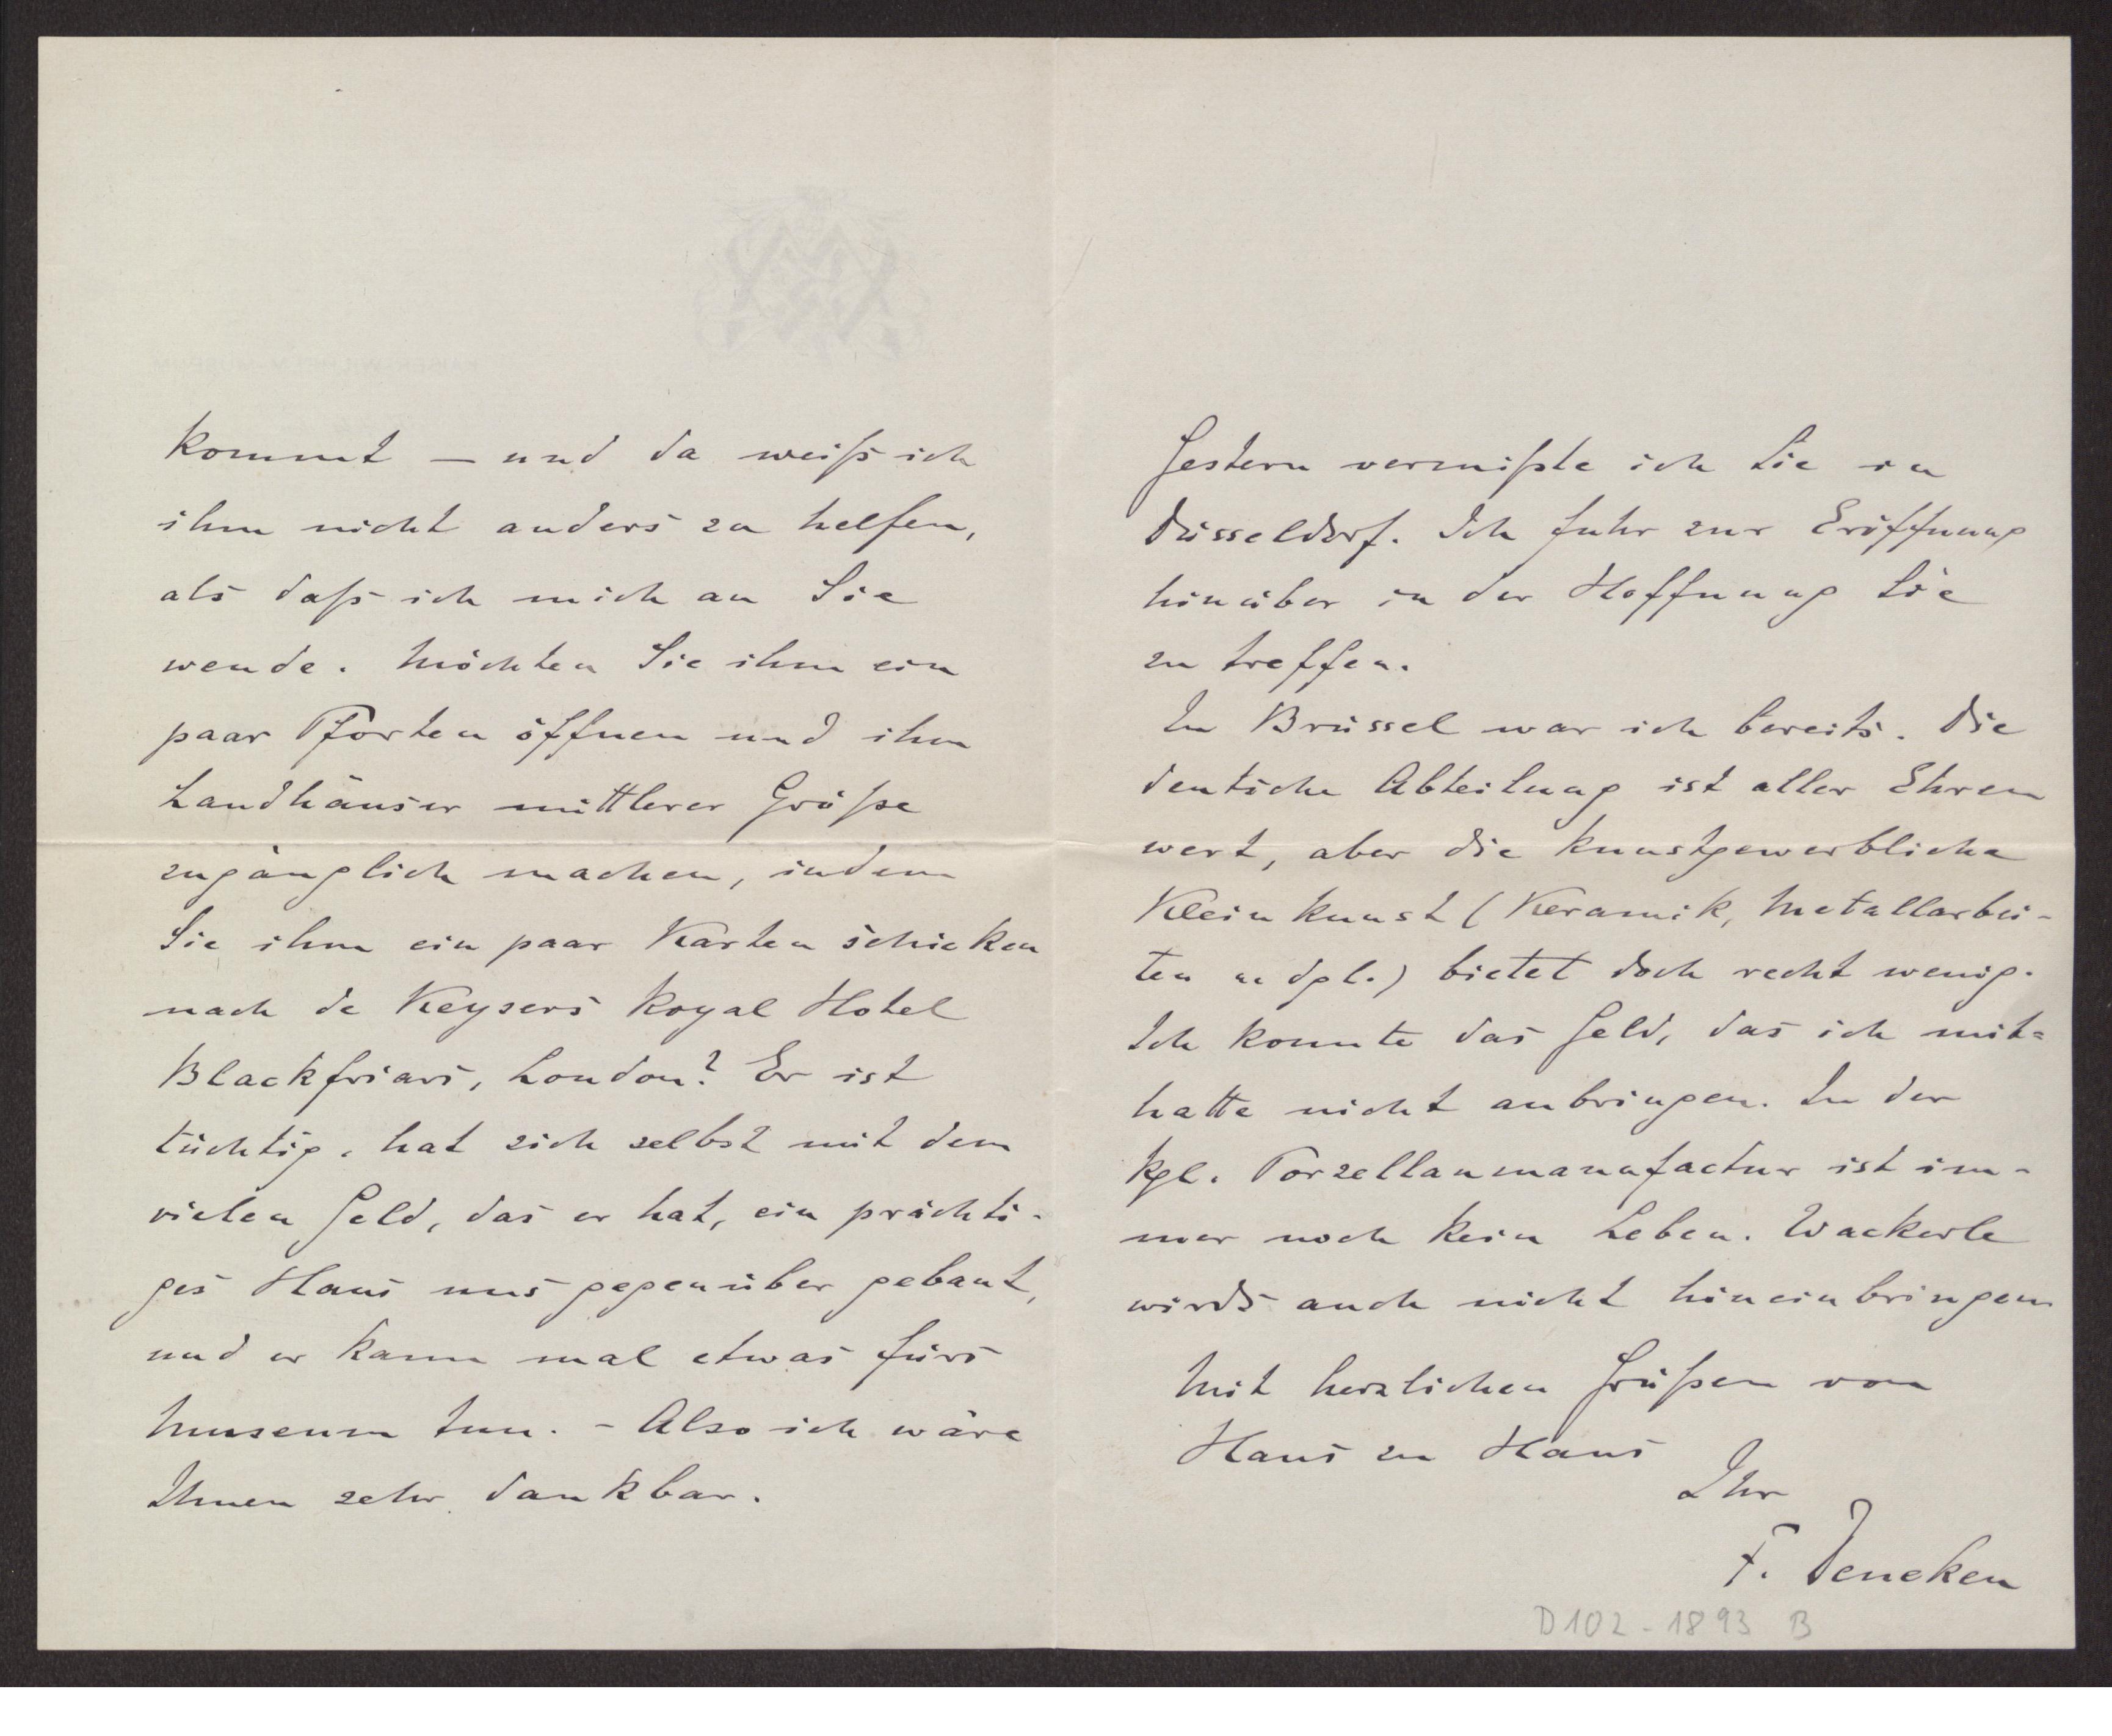 kommt – und da weiß ich
ihm nicht anders zu helfen,
als daß ich mich an Sie
wende. Möchten Sie ihm ein
paar Pforten öffnen und ihm
Landhäuser mittlerer Größe
zugänglich machen, indem
Sie ihm ein paar Karten schicken
nach de Keysers Royal Hotel
Blackfriars, London? Er ist
tüchtig, hat sich selbst mit dem
vielen Geld, das er hat, ein prächti-
ges Haus uns gegenüber gebaut,
und er kann mal etwas fürs
Museum tun. – Also ich wäre
Ihnen sehr dankbar.
Gestern vermißte ich Sie in
Düsseldorf. Ich fuhr zur Eröffnung
hinüber in der Hoffnung Sie
zu treffen.
In Brüssel war ich bereits. Die
deutsche Abteilung ist aller Ehren
wert, aber die kunstgewerbliche
Kleinkunst (Keramik, Metallarbei-
ten u dgl.) bietet doch recht wenig.
Ich konnte das Geld, das ich mit-
hatte nicht anbringen. In der
Kgl. Porzellanmanufactur ist im-
mer noch kein Leben. Wackerle
wirds auch nicht hineinbringen
Mit herzlichen Grüßen von
Haus zu Haus
Ihr
F. Deneken
D102-1893 B